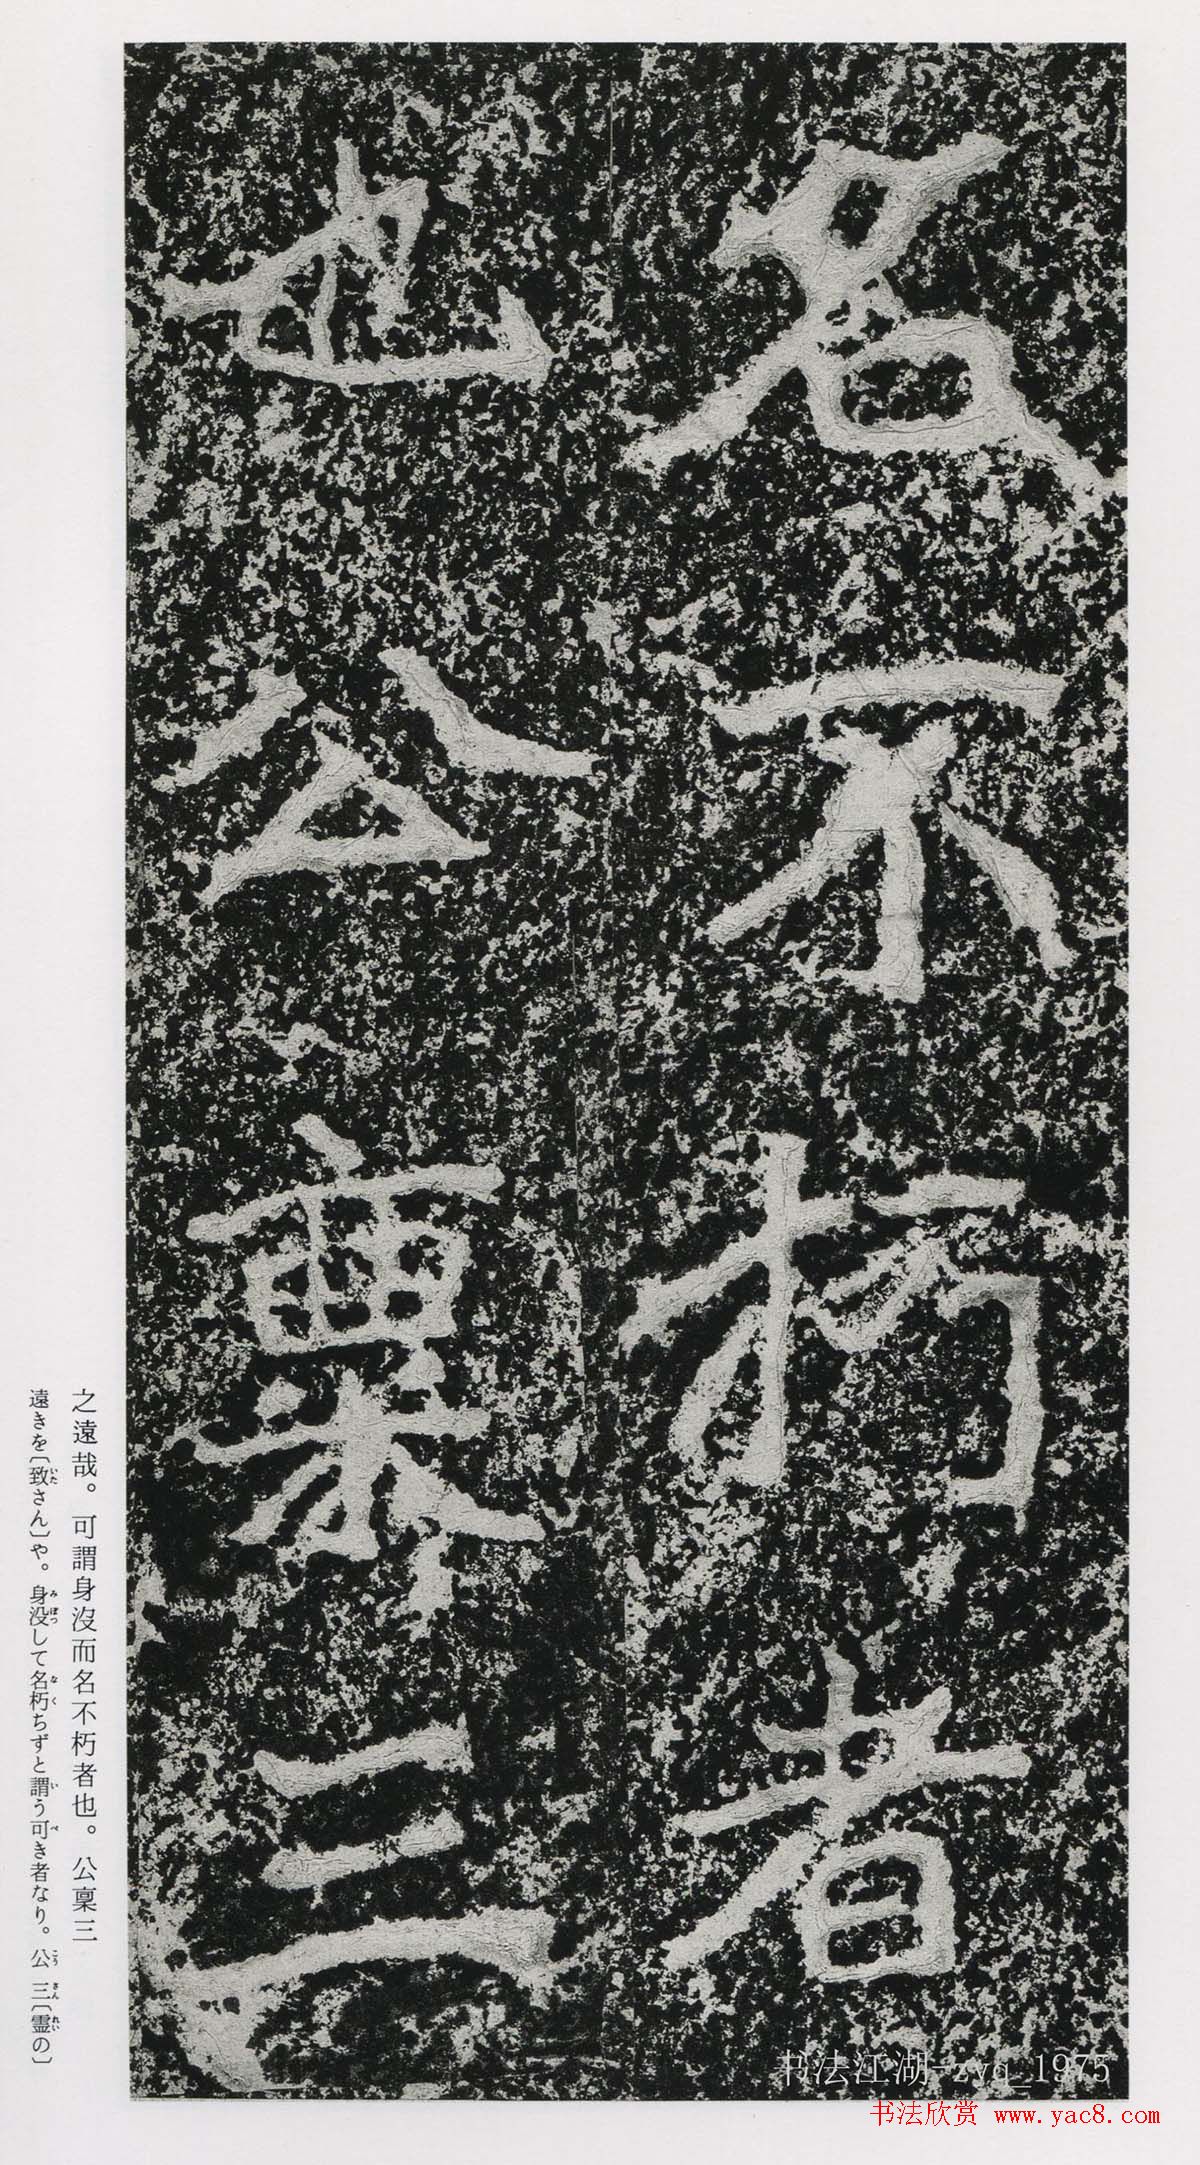 名不朽者
也公稟三
之遠哉。可謂身沒而名不朽者也。公稟三
遠きを〔致さん〕や。身没して名朽ちずと謂う可き者なり。公三〔霊の〕
いた
み ぼつ
な く
い べ
こう さん れい
书法江湖-zyq_1975
书法欣赏 www.yac8.com